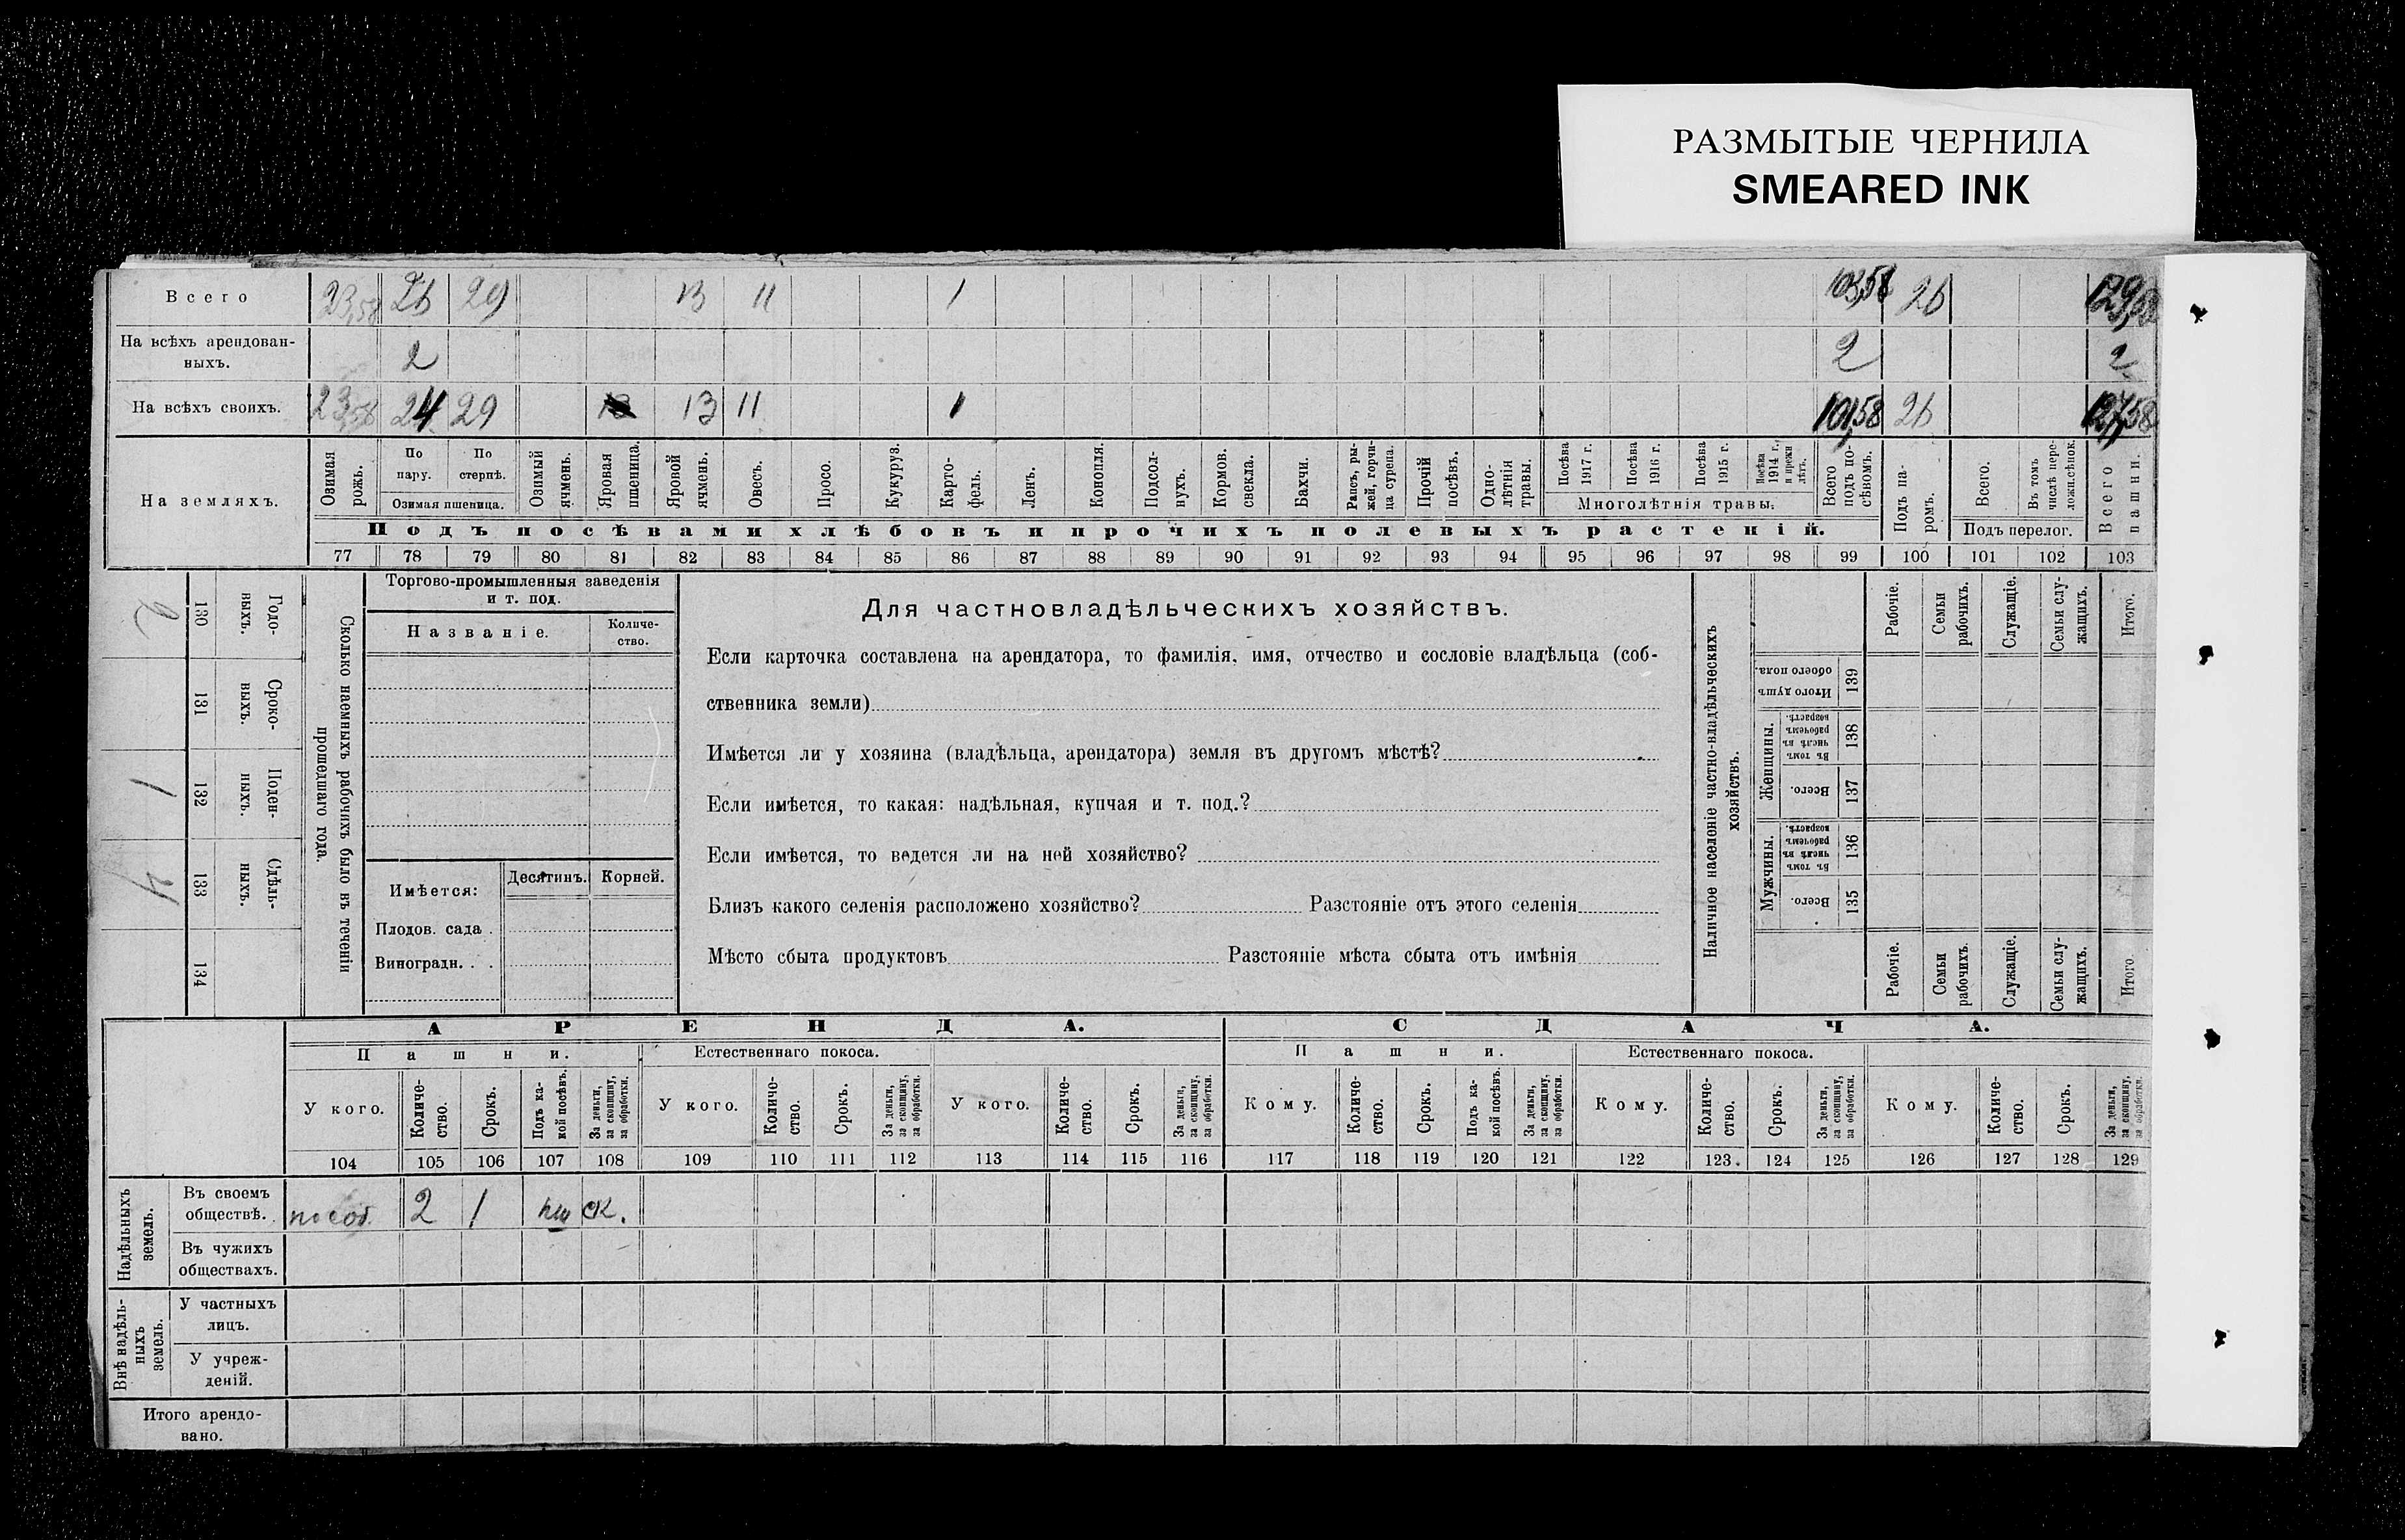 РАЗМЫТЫЕ ЧЕРНИЛА
SMEARED INK
Всего 23,58 26 29 13 11 1 103,58 26 129,58
На всѣхъ арендован-
ныхъ. 2 2 2
На всѣхъ своихъ. 23,58 24 29 13 11 1 101,58 26 127,58
На земляхъ.
Озимая рожь.
По пару.
По стернѣ.
Озимая пшеница.
Озимый ячмень.
Яровая пшеница.
Яровой ячмень.
Овесъ.
Просо.
Кукуруз.
Карто-
фель.
Ленъ.
Конопля.
Подсол-
нухъ.
Кормов. свекла.
Бахчи.
Рапсъ, ры-
жей, горчи-
ца сурепа.
Прочій посѣвъ.
Одно-
лѣтнія травы.
Посѣва 1917 г.
Посѣва 1916 г.
Посѣва 1915 г.
Посѣва 1914 г., и прежн лѣтъ.
Многолѣтнія травы.
Всего подъ по-
сѣвомъ.
Подъ па-
ромъ.
Всего.
Въ томъ числѣ пере-
ложн.сѣнок.
Подъ перелог.
Всего пашни.
Подъ посѣвами хлѣбовъ и прочихъ полевыхъ растеній.
77 78 79 80 81 82 83 84 85 86 87 88 89 90 91 92 93 94 95 96 97 98 99 100 101 102 103
Сколько наемныхъ рабочихъ было въ теченіи
прошедшаго года.
Годо-
выхъ. 130 2
Сроко-
выхъ. 131
Поден-
ныхъ. 132 1
Сдѣль-
ныхъ. 133 4
134
Торгово-промышленныя заведенія
и т. под.
Названіе.
Количе-
ство.
Имѣется:
Десятинъ. Корней.
Плодов. сада .
Виноградн. . .
Для частновладѣльческихъ хозяйствъ.
Если карточка составлена на арендатора, то фамилія, имя, отчество и сословіе владѣльца (соб-
ственника земли)
Имѣется ли у хозяина (владѣльца, арендатора) земля въ другомъ мѣстѣ?
Если имѣется, то какая: надѣльная, купчая и т. под.?
Если имѣется, то ведется ли на ней хозяйство?
Близъ какого селенія расположено хозяйство? Разстояніе отъ этого селенія
Мѣсто сбыта продуктовъ Разстояніе мѣста сбыта отъ имѣнія
Наличное населеніе частно-владѣльческихъ
хозяйствъ.
Рабочіе.
Семьи рабочихъ.
Служащіе.
Семьи слу-
жащихъ.
Итого.
Итого душъ обоего пола. 139
Женщины.
Въ томъ числѣ въ рабочемъ возрастѣ. 138
Всего. 137
Мужчины.
Въ томъ числѣ въ рабочемъ возрастѣ. 136
Всего. 135
Рабочіе.
Семьи рабочихъ.
Служащіе.
Семьи слу-
жащихъ.
Итого.
АРЕНДА. СДАЧА.
Пашни. Естественнаго покоса. Пашни. Естественнаго покоса.
У кого.
Количе-
ство.
Срокъ.
Подъ ка-
кой посѣвъ.
За деньги,
за скопщину,
за обработки.
У кого.
Количе-
ство.
Срокъ.
За деньги,
за скопщину,
за обработки.
У кого.
Количе-
ство.
Срокъ.
За деньги,
за скопщину,
за обработки.
Кому.
Количе-
ство.
Срокъ.
Подъ ка-
кой посѣвъ.
За деньги,
за скопщину,
за обработки.
Кому.
Количе-
ство.
Срокъ.
За деньги,
за скопщину,
за обработки.
Кому.
Количе-
ство.
Срокъ.
За деньги,
за скопщину,
за обработки.
104 105 106 107 108 109 110 111 112 113 114 115 116 117 118 119 120 121 122 123. 124 125 126 127 128 129
Надѣльныхъ
земель.
Въ своемъ
обществѣ. 2 1 пш ск.
Въ чужихъ
обществахъ.
Внѣ надѣль-
ныхъ
земель.
У частныхъ
лицъ.
У учреж-
деній.
Итого арендо-
вано.